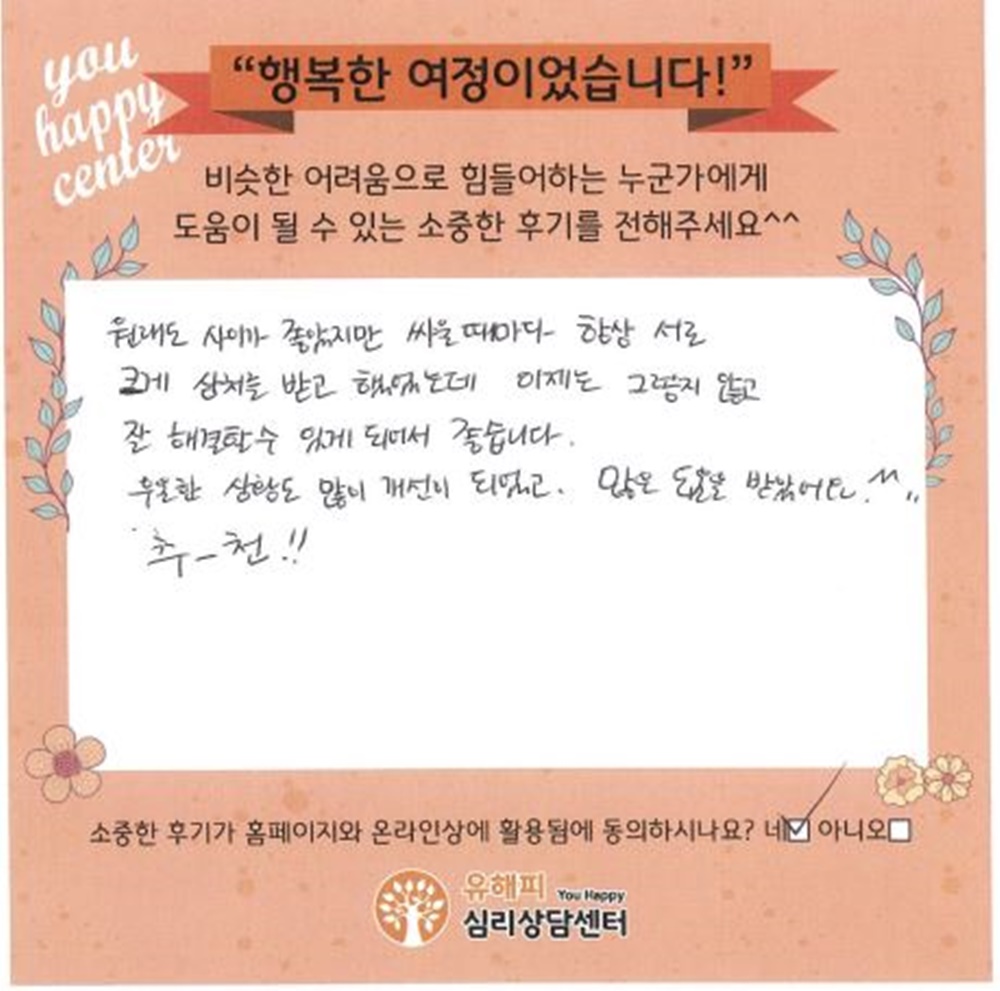 you
happy
center
“행복한 여정이었습니다!”
비슷한 어려움으로 힘들어하는 누군가에게
도움이 될 수 있는 소중한 후기를 전해주세요^^
원래도 사이가 좋았지만 싸울때마다 항상 서로
크게 상처를 받고 했었는데 이제는 그렇지 않고
잘 해결할수 있게 되어서 좋습니다.
우울한 상황도 많이 개선이 되었고. 많은 도움을 받았어요.^^
추-천!!
소중한 후기가 홈페이지와 온라인상에 활용됨에 동의하시나요? 네☑ 아니오☐
유해피 You Happy
심리상담센터